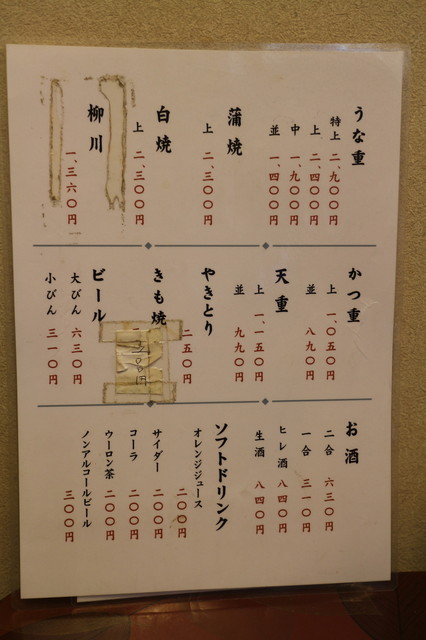 うな重
特上 二、九〇〇円
上 二、四〇〇円
中 一、九〇〇円
並 一、四〇〇円
蒲焼
上 二、三〇〇円
白焼
上 二、三〇〇円
柳川
一、三六〇円
かつ重
上 一、〇五〇円
並 八九〇円
天重
上 一、一五〇円
並 九九〇円
やきとり
二五〇円
きも焼
ビール
大びん 六三〇円
小びん 三一〇円
お酒
二合 六三〇円
一合 三一〇円
ヒレ酒 八四〇円
生酒 八四〇円
ソフトドリンク
オレンジジュース
二〇〇円
サイダー 二〇〇円
コーラ 二〇〇円
ウーロン茶 二〇〇円
ノンアルコールビール
三〇〇円